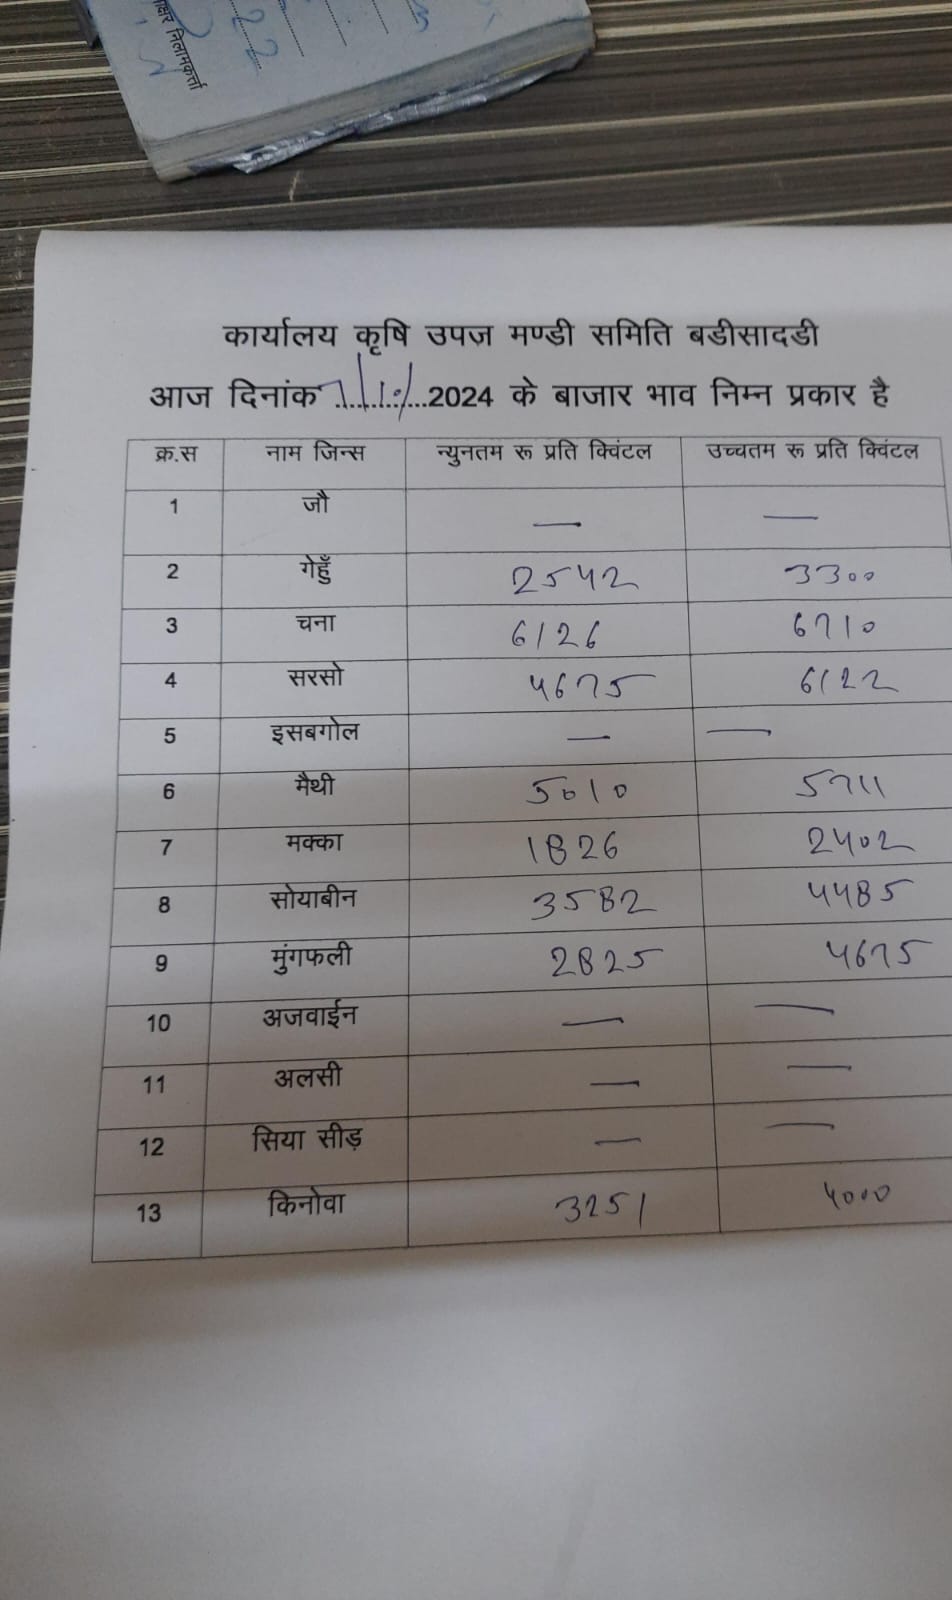 साक्षर निलामकर्त्ता
22
कार्यालय कृषि उपज मण्डी समिति बडीसादडी
आज दिनांक 7/10/2024 के बाजार भाव निम्न प्रकार है
क्र.स नाम जिन्स न्युनतम रू प्रति क्विंटल उच्चतम रू प्रति क्विंटल
1 जौ — —
2 गेहुँ 2542 3300
3 चना 6126 6710
4 सरसो 4675 6122
5 इसबगोल — —
6 मैथी 5010 5711
7 मक्का 1826 2402
8 सोयाबीन 3582 4485
9 मुंगफली 2825 4675
10 अजवाईन — —
11 अलसी — —
12 सिया सीड़ — —
13 किनोवा 3251 4000